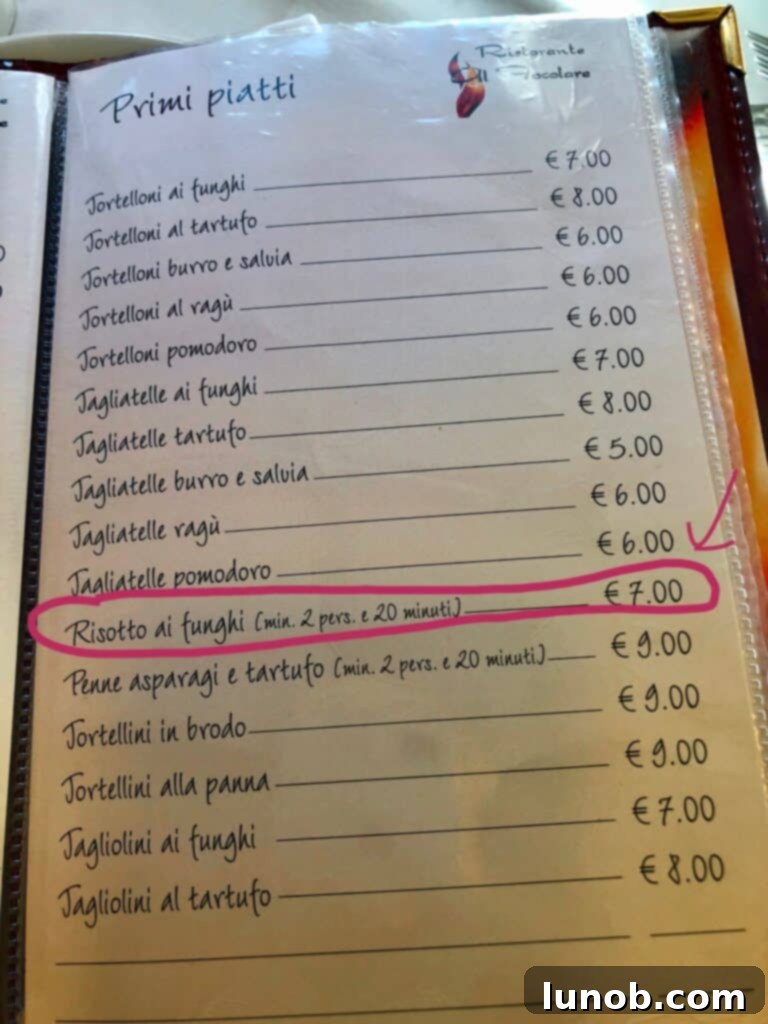 Primi piatti
Ristorante
Il Focolare
Tortelloni ai funghi € 7.00
Tortelloni al tartufo € 8.00
Tortelloni burro e salvia € 6.00
Tortelloni al ragù € 6.00
Tortelloni pomodoro € 6.00
Tagliatelle ai funghi € 7.00
Tagliatelle tartufo € 8.00
Tagliatelle burro e salvia € 5.00
Tagliatelle ragù € 6.00
Tagliatelle pomodoro € 6.00
Risotto ai funghi (min. 2 pers. e 20 minuti) € 7.00
Penne asparagi e tartufo (min. 2 pers. e 20 minuti) € 9.00
Tortellini in brodo € 9.00
Tortellini alla panna € 9.00
Tagliolini ai funghi € 7.00
Tagliolini al tartufo € 8.00
lunob.com